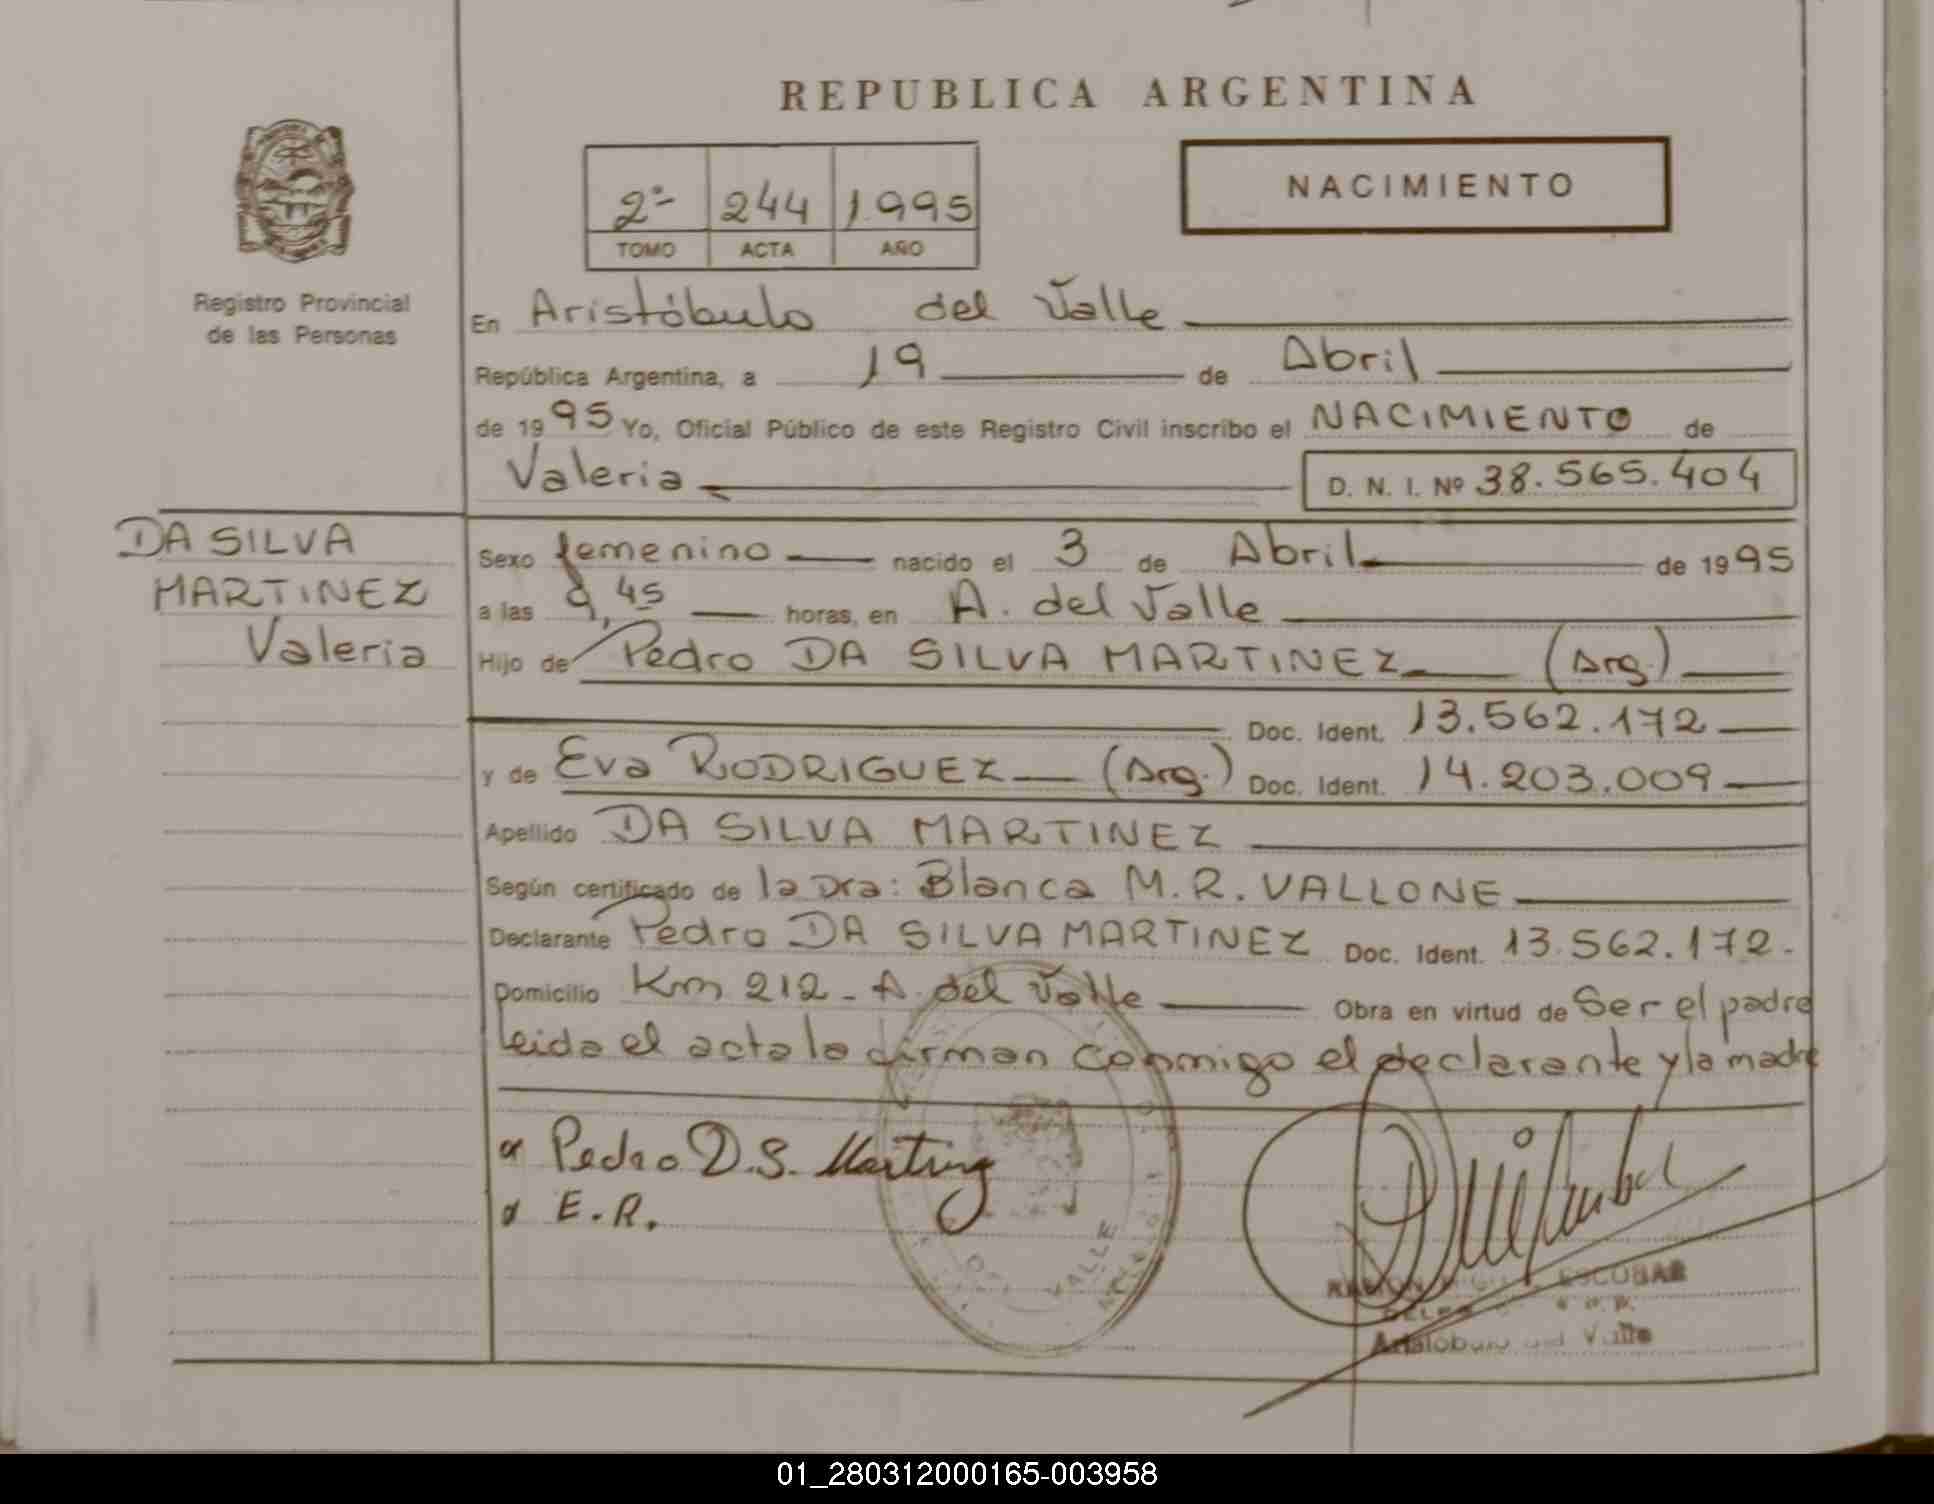 REPUBLICA ARGENTINA
NACIMIENTO
2º 244 1995
TOMO ACTA AÑO
Registro Provincial
de las Personas
En Aristóbulo del Valle
República Argentina, a 19 de Abril
de 1995 Yo, Oficial Público de este Registro Civil inscribo el NACIMIENTO de
Valeria D. N. I. Nº 38.565.404
DA SILVA
MARTINEZ
Valeria
Sexo femenino nacido el 3 de Abril de 1995
a las 9,45 horas, en A. del Valle
Hijo de Pedro DA SILVA MARTINEZ (Arg.)
Doc. Ident. 13.562.172
y de Eva RODRIGUEZ (Arg.) Doc. Ident. 14.203.009
Apellido DA SILVA MARTINEZ
Según certificado de la Dra: Blanca M. R. VALLONE
Declarante Pedro DA SILVA MARTINEZ Doc. Ident. 13.562.172.
Domicilio Km 212 - A. del Valle Obra en virtud de Ser el padre
leida el acta la firman conmigo el declarante y la madre
Pedro D.S. Martinez
E.R.
DEL VALLE
RAMON ESCOBAR
Aristobulo del Valle
01_280312000165-003958